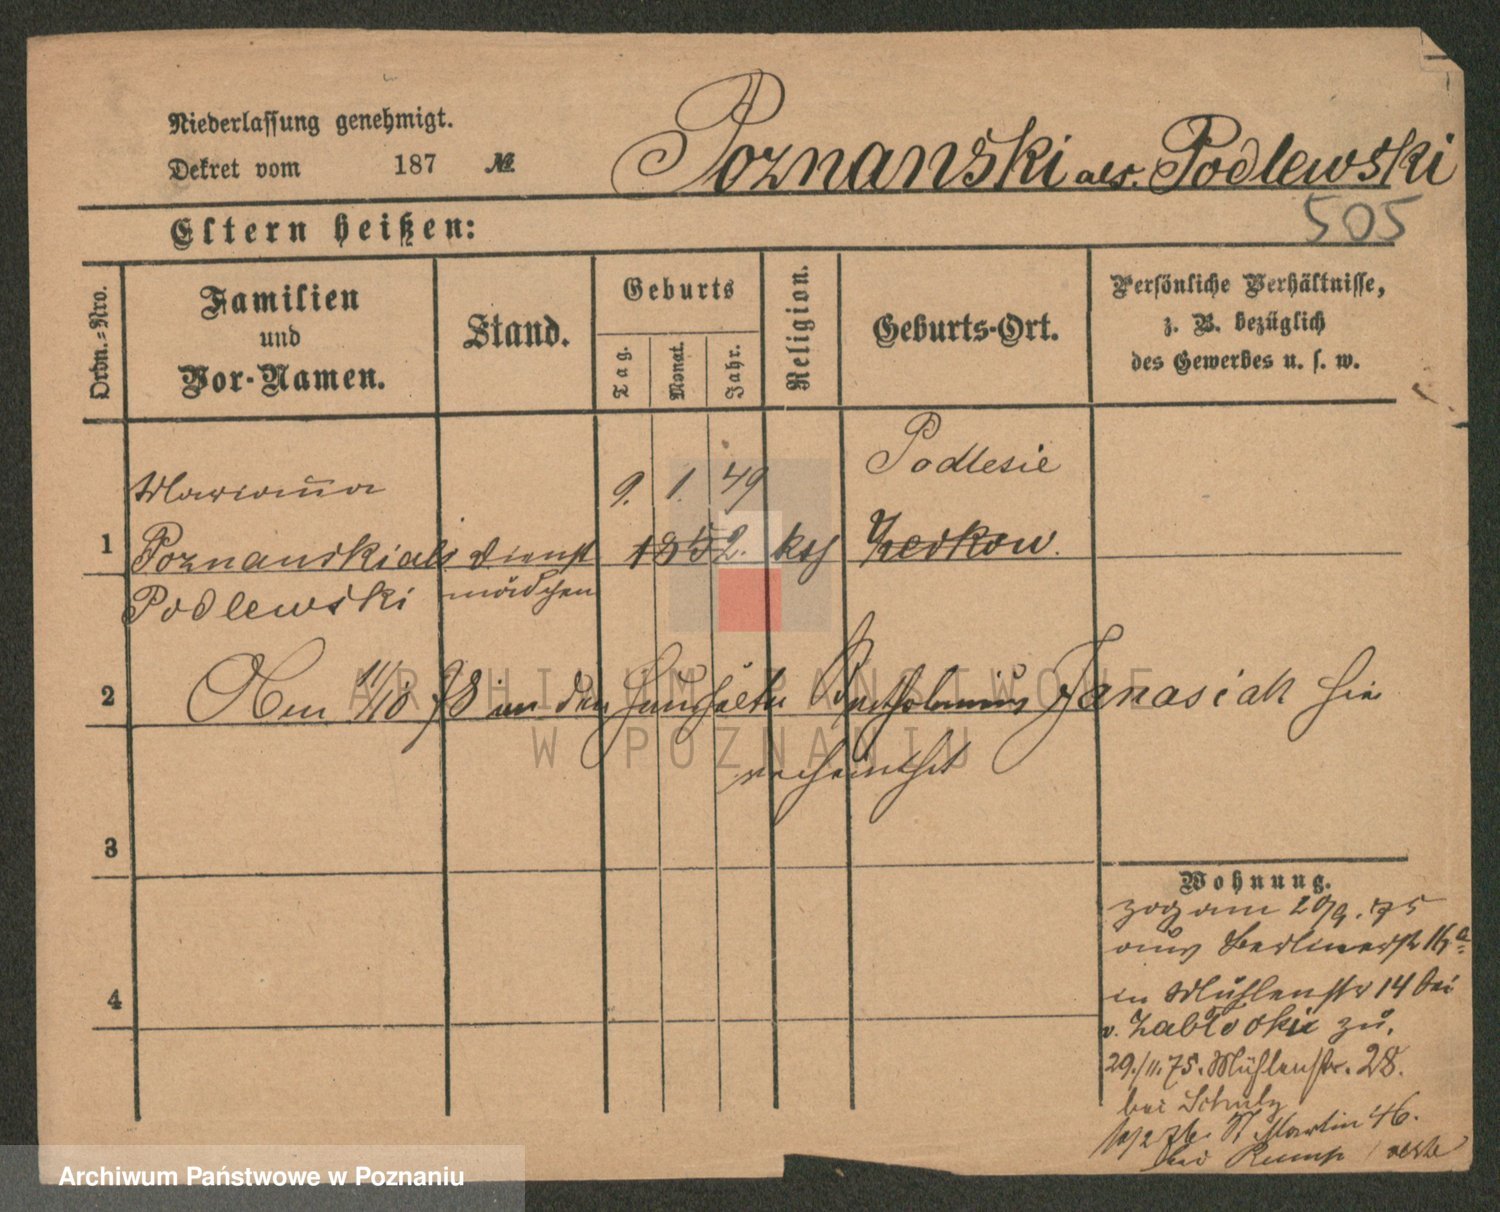 Niederlassung genehmigt.
Dekret vom 187 №
Poznanski als. Podlewski
505
Eltern heißen:
Ordn.-Nro.
Familien
und
Vor-Namen.
Stand.
Geburts
Tag.
Monat.
Jahr.
Religion.
Geburts-Ort.
Persönliche Verhältnisse,
z. B. bezüglich
des Gewerbes u. s. w.
Marianna 9. 1. 49 Podlesie
1 Poznanski als Dienst 1852. kth Zerkow.
Podlewski mädchen
2 Am 11/10 78 an den Haushälter Bartholomäus Janasiak hier
verheirathet
3
4
Wohnung.
zog am 20/9. 75
aus Berlinerstr 16a
in Mühlenstr 14 bei
v. Zabłocki zu.
29./11.75. Mühlenstr. 28.
bei Schulz
76. St Martin 46.
bei
ARCHIWUM PAŃSTWOWE
W POZNANIU
Archiwum Państwowe w Poznaniu